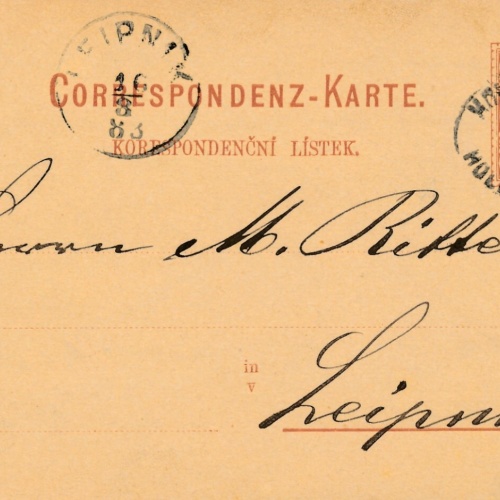 LEIPNIK
16
3
83
CORRESPONDENZ-KARTE.
KORESPONDENČNÍ LÍSTEK.
Herrn M. Ritte
in
v
Leipn